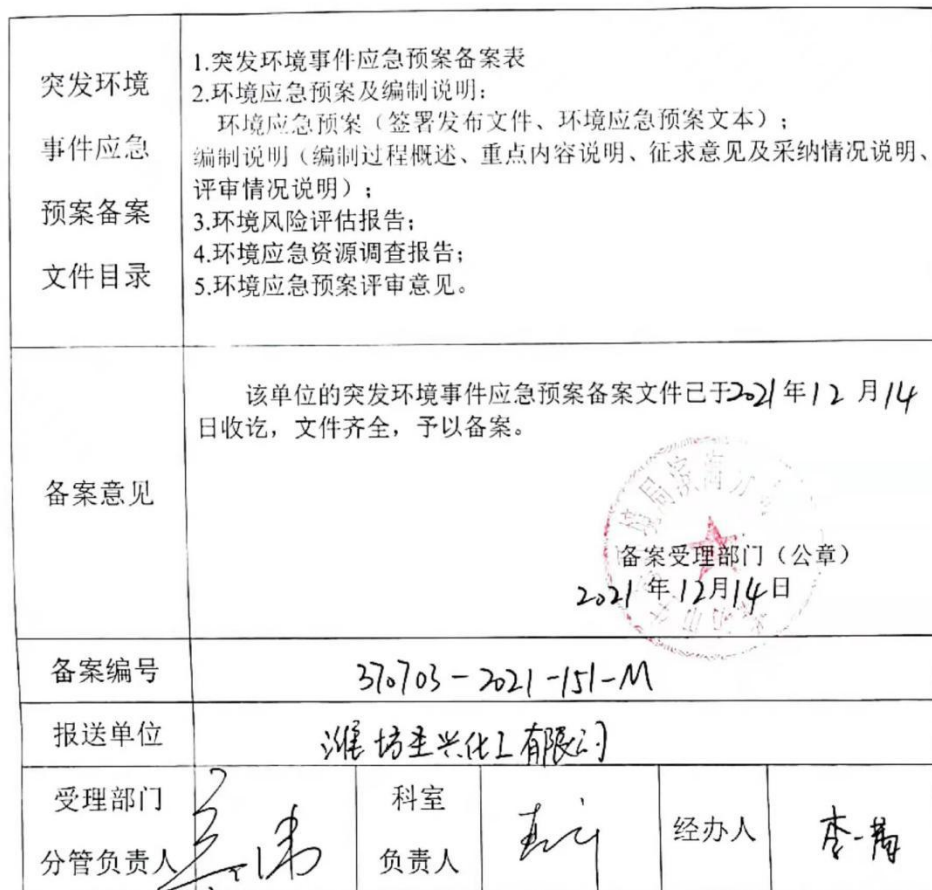 突发环境
事件应急
预案备案
文件目录
1.突发环境事件应急预案备案表
2.环境应急预案及编制说明：
环境应急预案（签署发布文件、环境应急预案文本）；
编制说明（编制过程概述、重点内容说明、征求意见及采纳情况说明、
评审情况说明）；
3.环境风险评估报告；
4.环境应急资源调查报告；
5.环境应急预案评审意见。
备案意见
该单位的突发环境事件应急预案备案文件已于2021年12月14
日收讫，文件齐全，予以备案。
境局滨海分
备案受理部门（公章）
2021年12月14日
备案编号
370703-2021-151-M
报送单位
潍坊圭兴化工有限公司
受理部门
分管负责人
科室
负责人
经办人